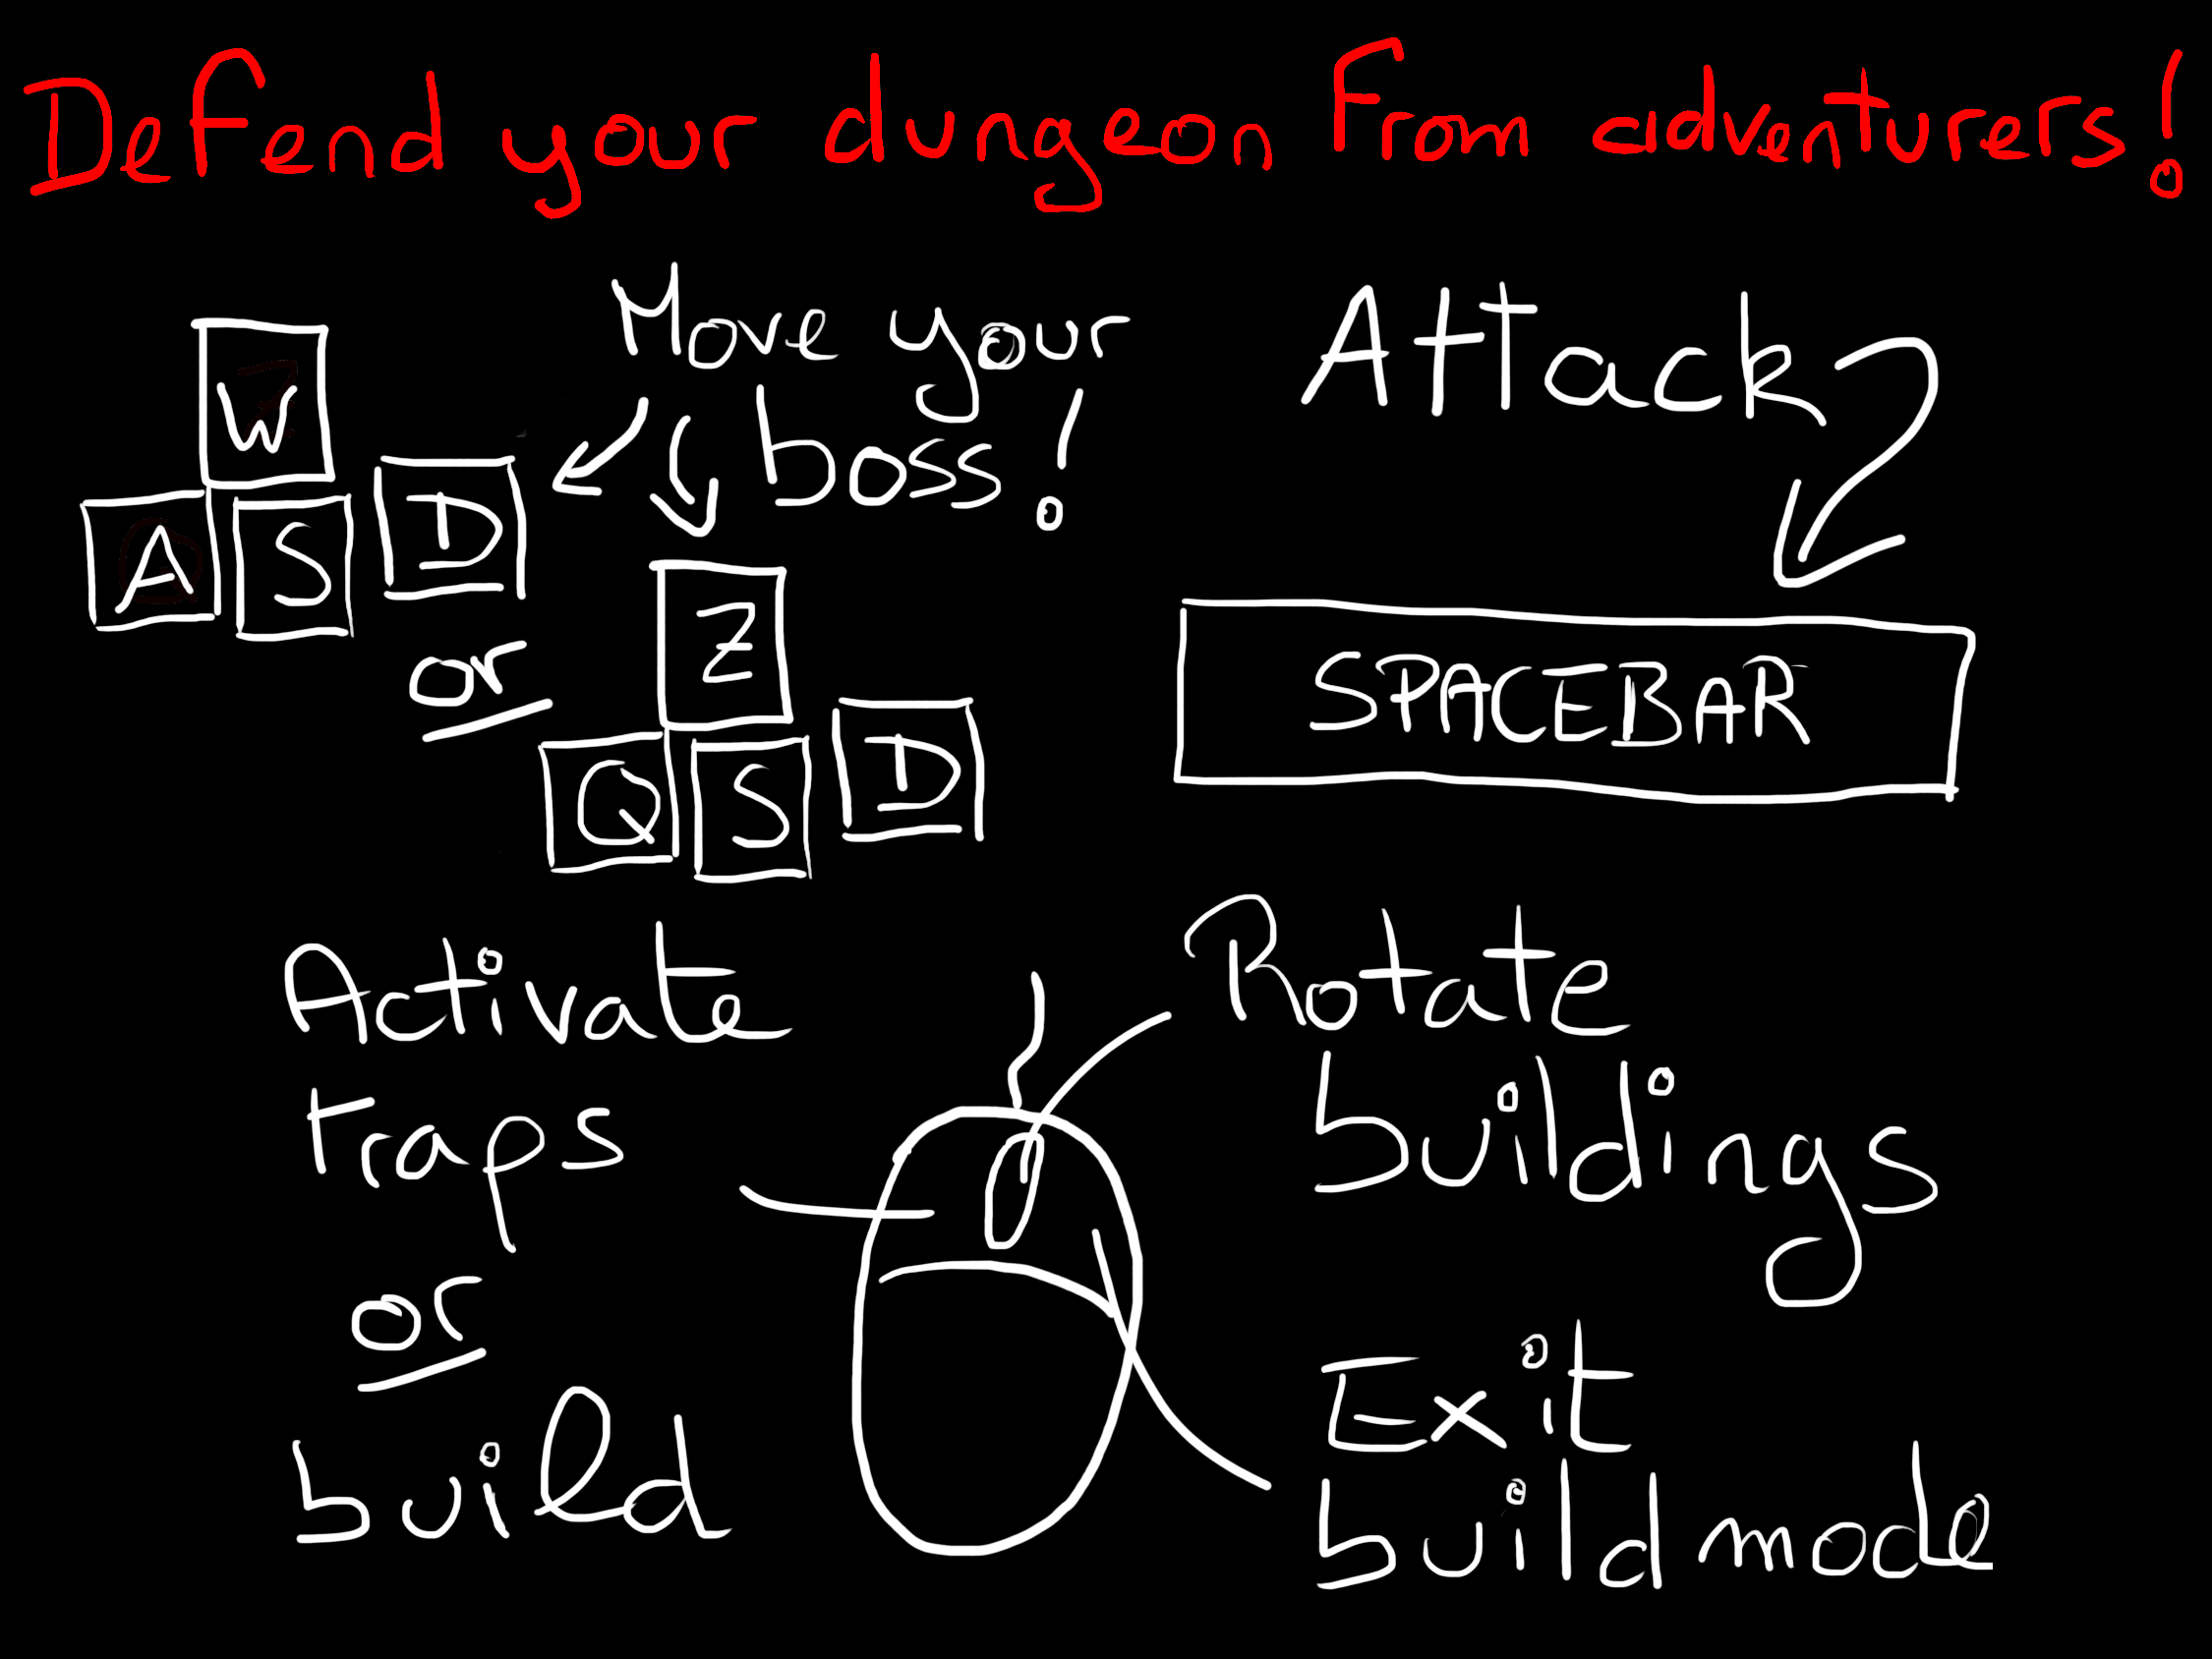 Defend your dungeon from adventurers!
Move your
boss!
W
A S D
or
Z
Q S D
Attack
SPACEBAR
Activate
traps
or
build
Rotate
buildings
Exit
build mode